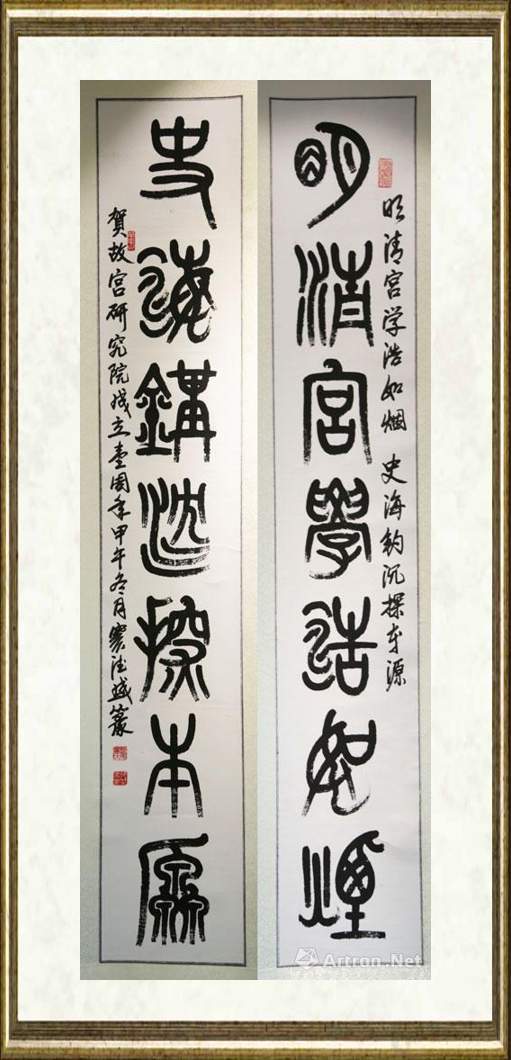 明清宫学浩如烟 史海钩沉探本源
明清宮學浩如煙
史海鈎沈探本原
贺故宫研究院成立壹周年甲午冬月篆
Artron.Net